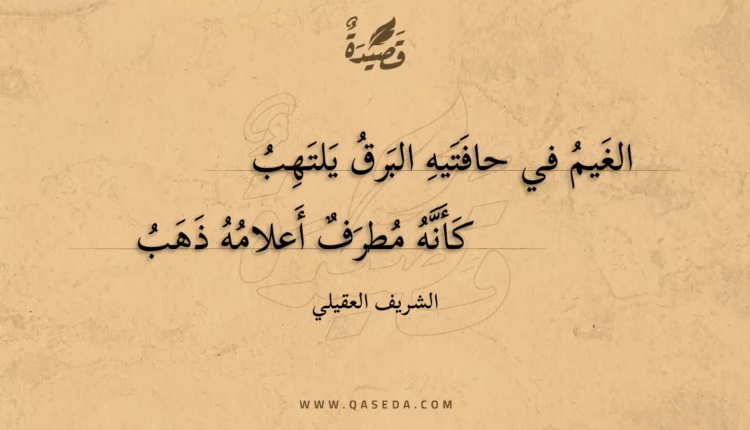 قَصِيدَةٌ
الغَيمُ في حافَتَيهِ البَرقُ يَلتَهِبُ
كَأَنَّهُ مُطرَفٌ أَعلامُهُ ذَهَبُ
الشريف العقيلي
WWW.QASEDA.COM